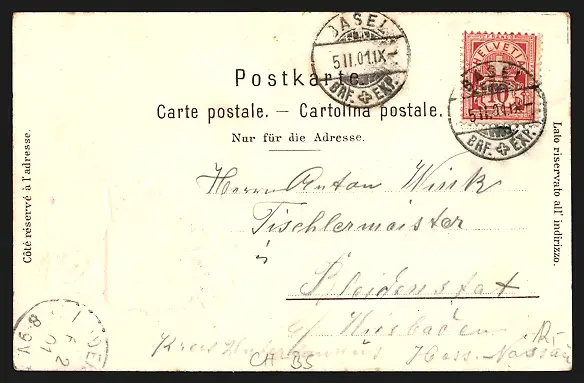 BASEL
5 II.01.IX
BRF. EXP.
HELVETIA
BASEL
5 II.01.IX
BRF. EXP.
Postkarte.
Carte postale. — Cartolina postale.
Nur für die Adresse.
Côté réservé à l'adresse.
Lato riservato all' indirizzo.
Herrn Anton Wink
Tischlermeister
in
a/ Wiesbaden
Kreis Hess. Nassau
CH BS
6 2
01
8-9V